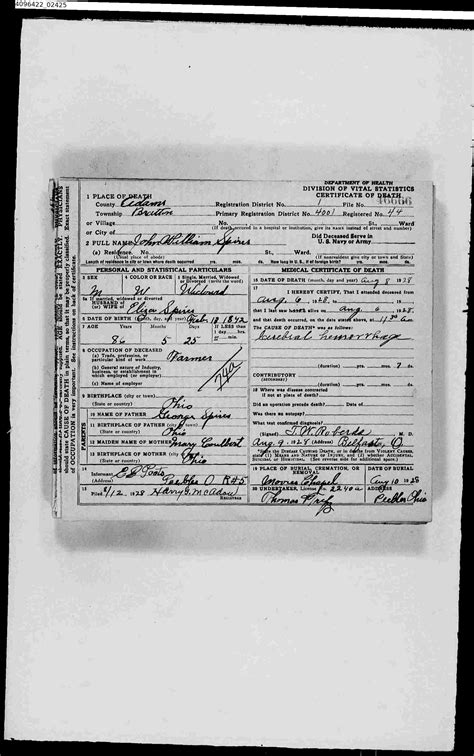 4096422_02425
DEPARTMENT OF HEALTH
DIVISION OF VITAL STATISTICS
CERTIFICATE OF DEATH
1 PLACE OF DEATH
County Adams Registration District No. 1 File No. 46666
Township Bratton Primary Registration District No. 4001 Registered No. 44
or Village No. St., Ward
or City of (If death occurred in a hospital or institution, give its name instead of street and number)
2 FULL NAME John William Spires Did Deceased Serve in U. S. Navy or Army
(a) Residence No. St., Ward.
(Usual place of abode) (If nonresident give city or town and State)
Length of residence in city or town where death occurred yrs. mos. ds. How long in U. S., if of foreign birth? yrs. mos. ds.
PERSONAL AND STATISTICAL PARTICULARS
3 SEX 4 COLOR OR RACE 5 Single, Married, Widowed or Divorced (write the word)
M W Widowed
5a If married, widowed or divorced
HUSBAND of
(or) WIFE of Eliza Spires
6 DATE OF BIRTH (month, day, and year) Feb. 18 1842
7 AGE Years Months Days If LESS than
1 day, hrs.
or min.
86 5 25
8 OCCUPATION OF DECEASED
(a) Trade, profession, or
particular kind of work Farmer
(b) General nature of industry,
business, or establishment in
which employed (or employer)
(c) Name of employer
9 BIRTHPLACE (city or town)
(State or country) Ohio
10 NAME OF FATHER George Spires
11 BIRTHPLACE OF FATHER (city or town)
(State or country) Ohio
12 MAIDEN NAME OF MOTHER Mary
13 BIRTHPLACE OF MOTHER (city or town)
(State or country) Ohio
PARENTS
14
Informant
(Address) Peebles O R#5
15
Filed 8/12, 1928 Harry G. McAdow
REGISTRAR
MEDICAL CERTIFICATE OF DEATH
16 DATE OF DEATH (month, day and year) Aug 8 1928
17
I HEREBY CERTIFY, That I attended deceased from
Aug. 6, 1928, to , 19
that I last saw h alive on Aug. 6, 1928
and that death occurred, on the date stated above, at m.
The CAUSE OF DEATH* was as follows:
Cerebral hemorrhage
(duration) yrs. mos. 7 ds.
CONTRIBUTORY
(SECONDARY)
(duration) yrs. mos. ds.
18 Where was disease contracted
if not at place of death?
Did an operation precede death? Date of
Was there an autopsy?
What test confirmed diagnosis?
(Signed) J. W. Roberds M. D.
Aug. 9, 1928 (Address) Belfast, O.
*State the DISEASE CAUSING DEATH, or in deaths from VIOLENT CAUSES,
state (1) MEANS AND NATURE OF INJURY, and (2) whether ACCIDENTAL,
SUICIDAL, or HOMICIDAL. (See reverse side for additional space)
19 PLACE OF BURIAL, CREMATION, OR REMOVAL DATE OF BURIAL
Moores Chapel Aug 10 1928
20 UNDERTAKER, License No. 2240a ADDRESS
Thomas Peebles Ohio